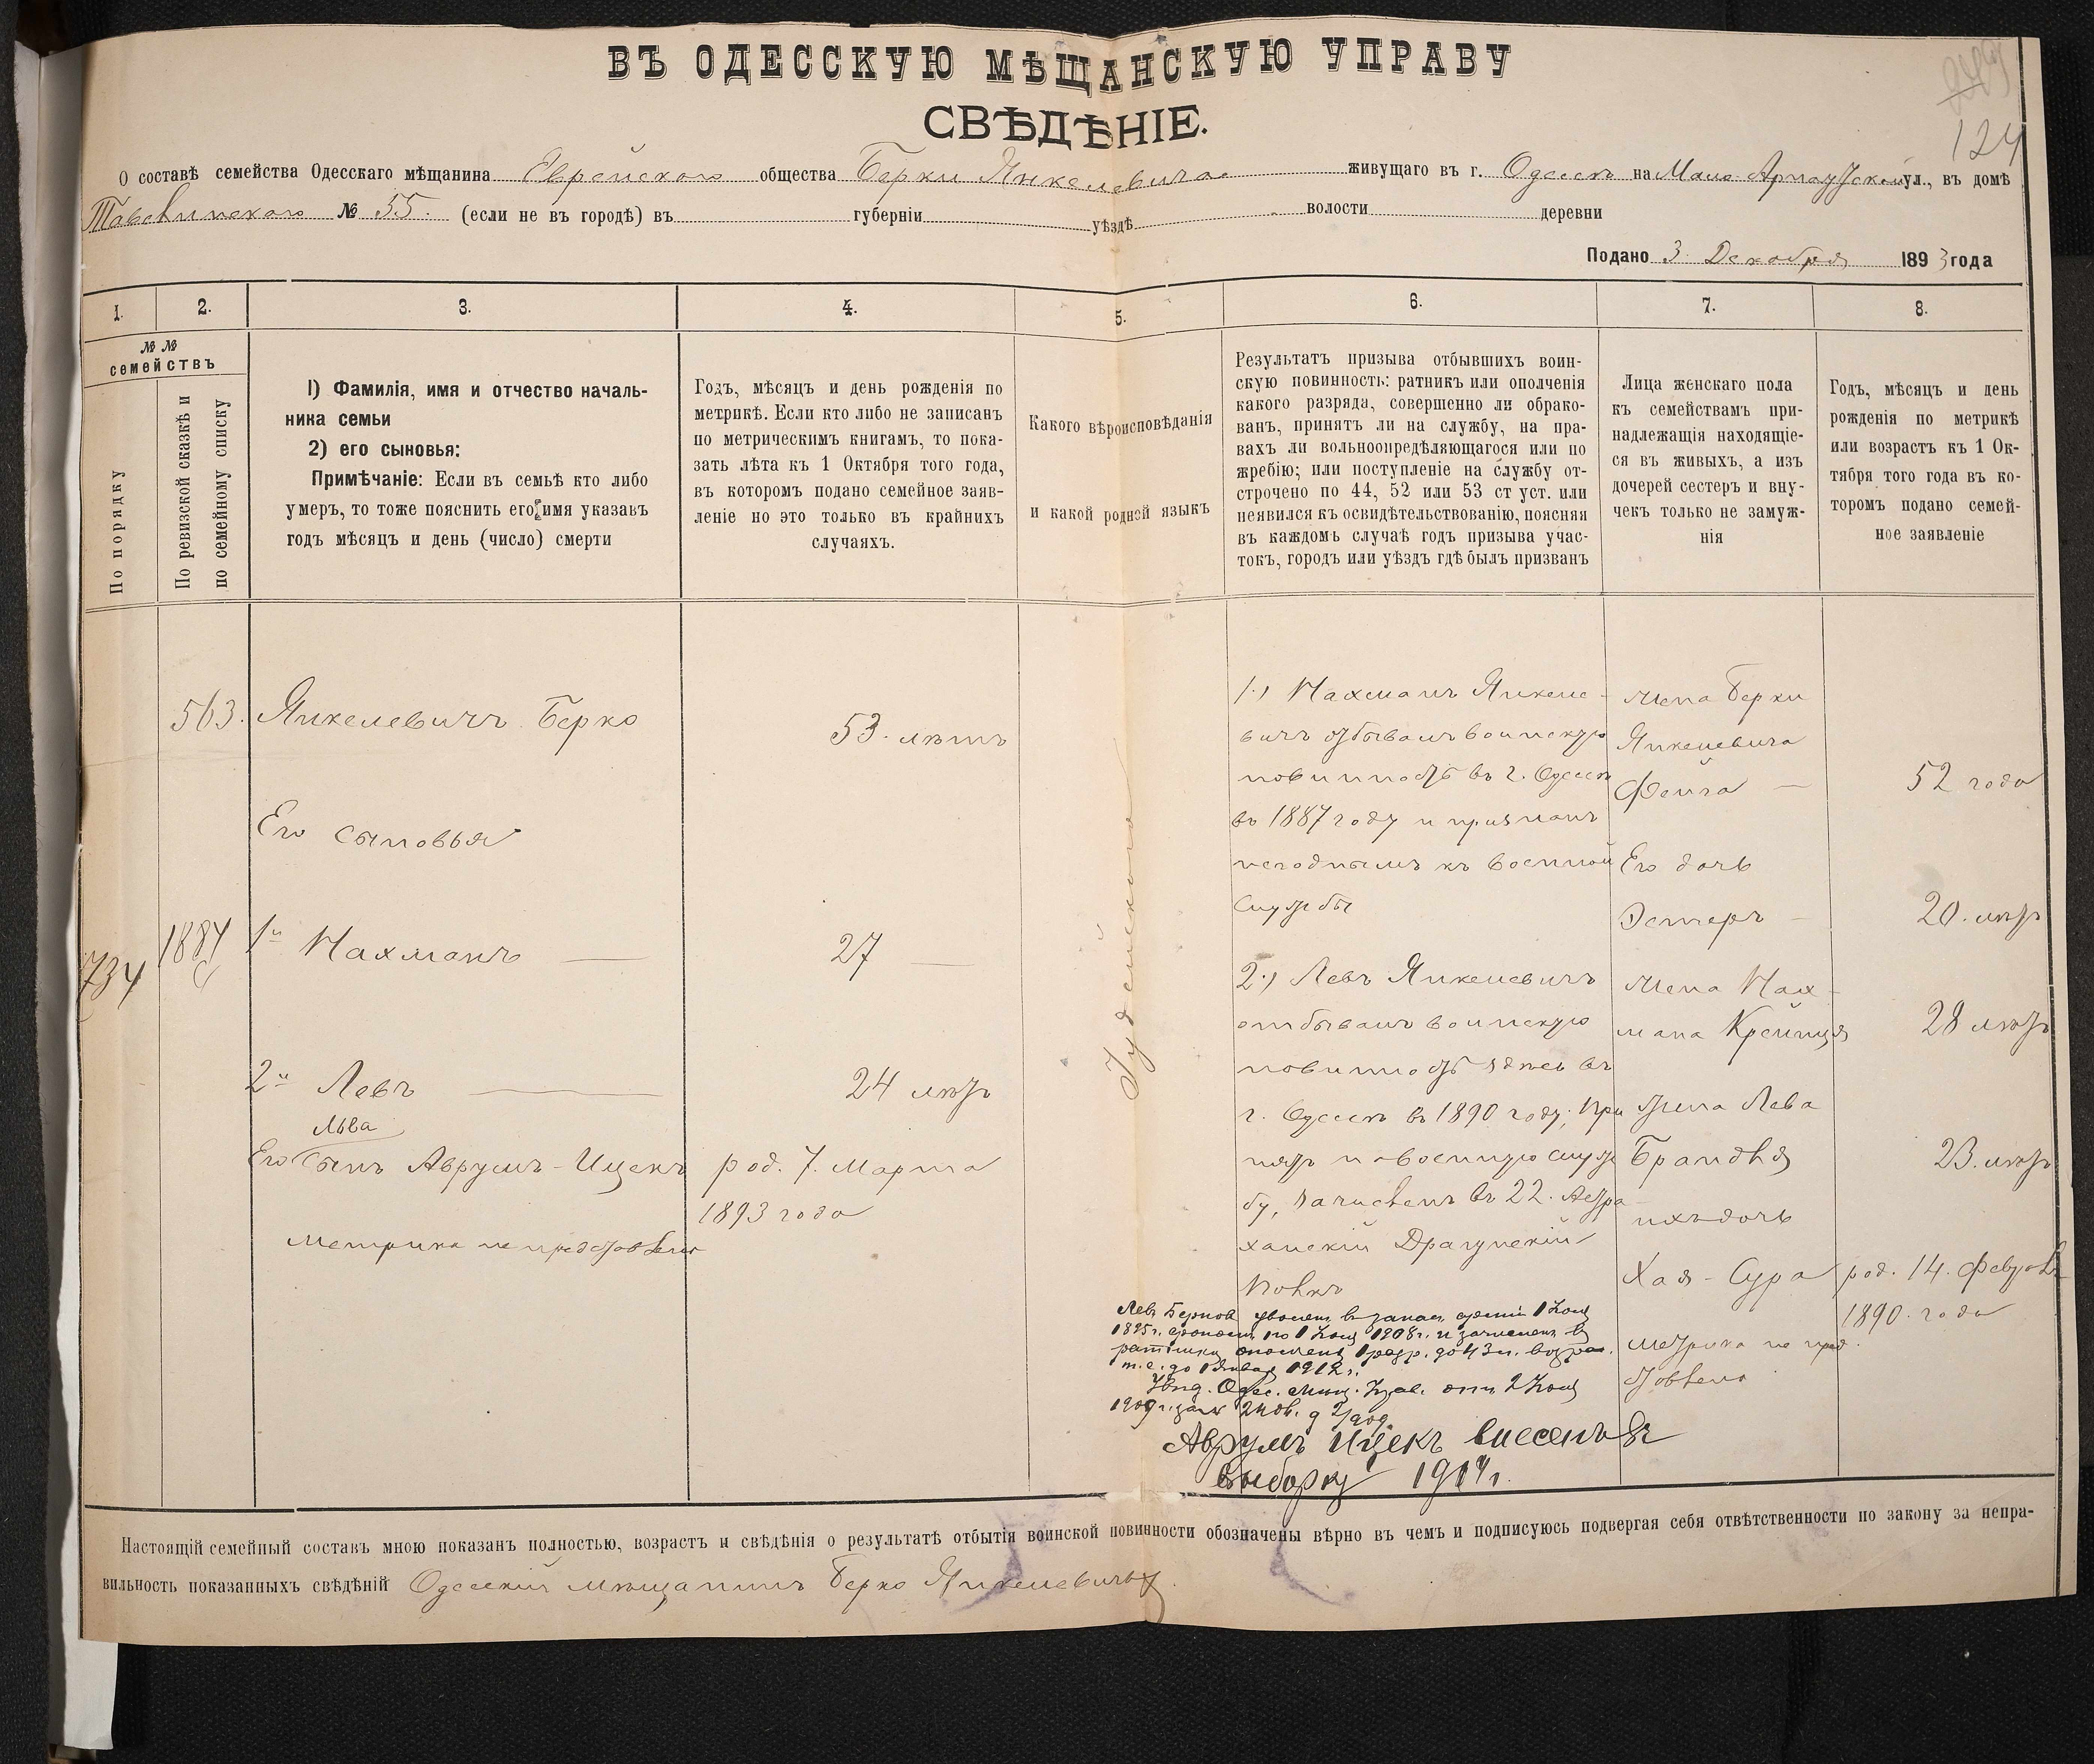 ВЪ ОДЕССКУЮ МѢЩАНСКУЮ УПРАВУ
СВѢДѢНІЕ.
124
О составѣ семейства Одесскаго мѣщанина Еврейскаго общества Берки Янкелевича живущаго въ г. Одессѣ на Мало Арнаутской ул., въ домѣ
№ 55. (если не въ городѣ) въ губерніи уѣздѣ волости деревни
Подано 3 Декабря 1893 года
1. 2. 3. 4. 5. 6. 7. 8.
№ №
семействъ
По порядку
По ревизской сказкѣ и
по семейному списку
1) Фамилія, имя и отчество началь-
ника семьи
2) его сыновья:
Примѣчаніе: Если въ семьѣ кто либо
умеръ, то тоже пояснить его имя указавъ
годъ мѣсяцъ и день (число) смерти
Годъ, мѣсяцъ и день рожденія по
метрикѣ. Если кто либо не записанъ
по метрическимъ книгамъ, то пока-
зать лѣта къ 1 Октября того года,
въ которомъ подано семейное заяв-
леніе но это только въ крайнихъ
случаяхъ.
Какого вѣроисповѣданія
и какой родной языкъ
Результатъ призыва отбывшихъ воин-
скую повинность: ратникъ или ополченія
какого разряда, совершенно ли обрако-
ванъ, принятъ ли на службу, на пра-
вахъ ли вольноопредѣляющагося или по
жребію; или поступленіе на службу от-
строчено по 44, 52 или 53 ст уст. или
неявился къ освидѣтельствованію, поясняя
въ каждомъ случаѣ годъ призыва учас-
токъ, городъ или уѣздъ гдѣ былъ призванъ
Лица женскаго пола
къ семействамъ при-
надлежащія находящіе-
ся въ живыхъ, а изъ
дочерей сестеръ и вну-
чекъ только не замуж-
нія
Годъ, мѣсяцъ и день
рожденія по метрикѣ
или возрастъ къ 1 Ок-
тября того года въ ко-
торомъ подано семей-
ное заявленіе
563. Янкелевичъ Берко
53. лѣтъ
Его сыновья
734
1884
1й Нахманъ —
27 —
2й Левъ —
24 лѣтъ
Льва
Его Сынъ Аврумъ-Ицекъ
род. 7. Марта
1893 года
Метрика не представлена
Іудейскаго
1.) Нахманъ Янкеле-
вичъ отбывалъ воинскую
повинность въ г. Одессѣ
въ 1887 году и признанъ
негоднымъ къ военной
службы
2.) Левъ Янкелевичъ
отбывалъ воинскую
повинность здѣсь въ
г. Одессѣ въ 1890 году; при
нятъ на военную служ
бу, зачисленъ въ 22. Астра
ханскій Драгунскій
Полкъ
Левъ Берковъ уволенъ въ запасъ арміи 1 Янв
1895 г. срокомъ по 1 Янв 1908 г. и зачисленъ въ
ратники ополчен 1 разр. до 43 л. возрас.
т. е. до 1 Января 1912 г.
Увѣд. Одес. Мѣщ. Управ. отъ 2 Янв
1909 г.
Аврумъ Ицекъ внесенъ въ
выборку 1914 г.
Жена Берки
Янкелевича
Фейга —
52 года
Его дочь
Эстеръ —
20. лѣтъ
Жена Нах-
мана Крейнця
28 лѣтъ
Жена Лева
Брандля
23. лѣтъ
ихъ дочь
Хая-Сура
род. 14. Февраля
1890. года
метрика не пред
ставлена
Настоящій семейный составъ мною показанъ полностью, возрастъ и свѣдѣнія о результатѣ отбытія воинской повинности обозначены вѣрно въ чемъ и подписуюсь подвергая себя отвѣтственности по закону за непра-
вильность показанныхъ свѣдѣній Одесскій мѣщанинъ Берко Янкелевичъ